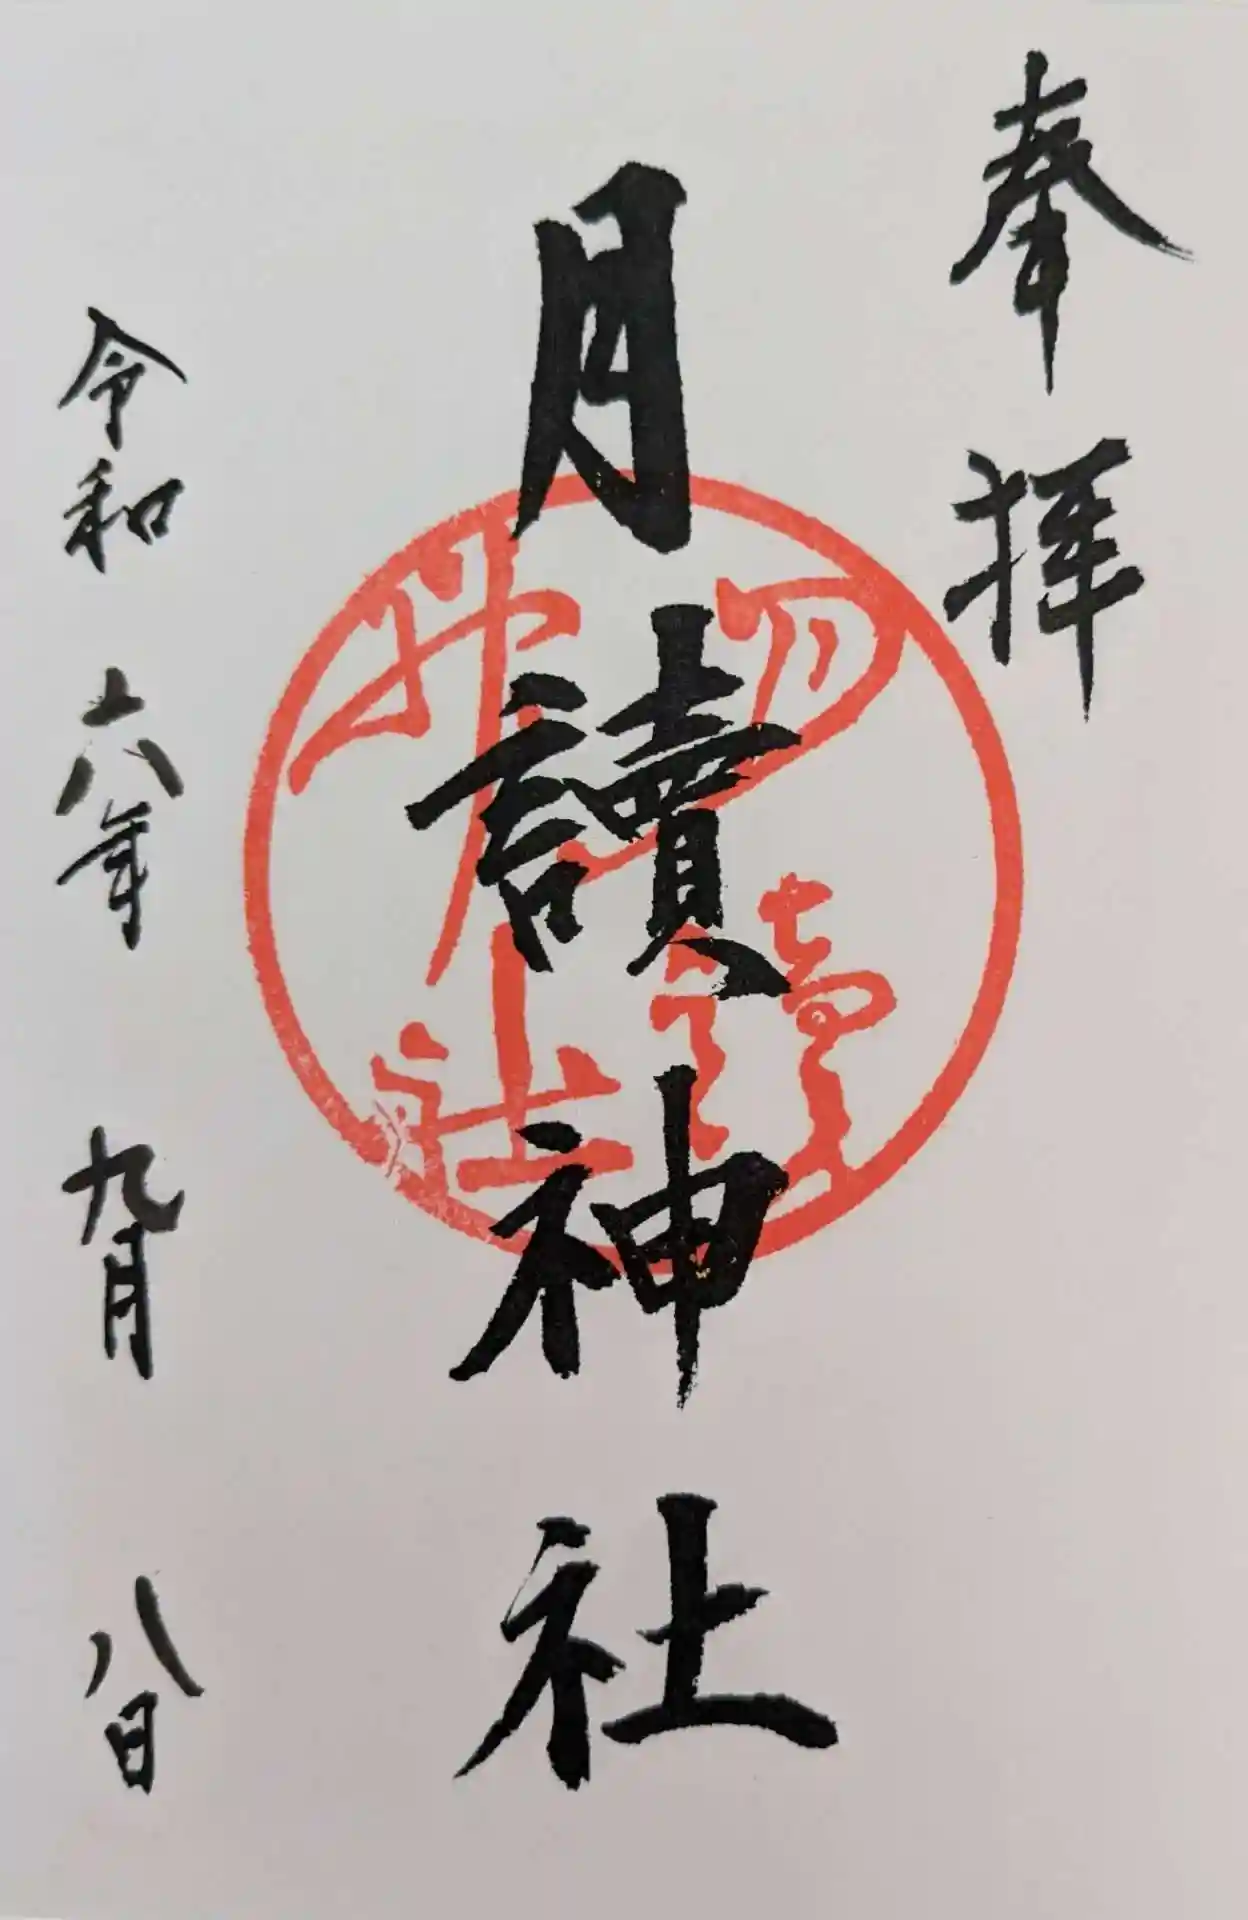 奉拝
月讀神社
月讀神社
令和六年九月八日